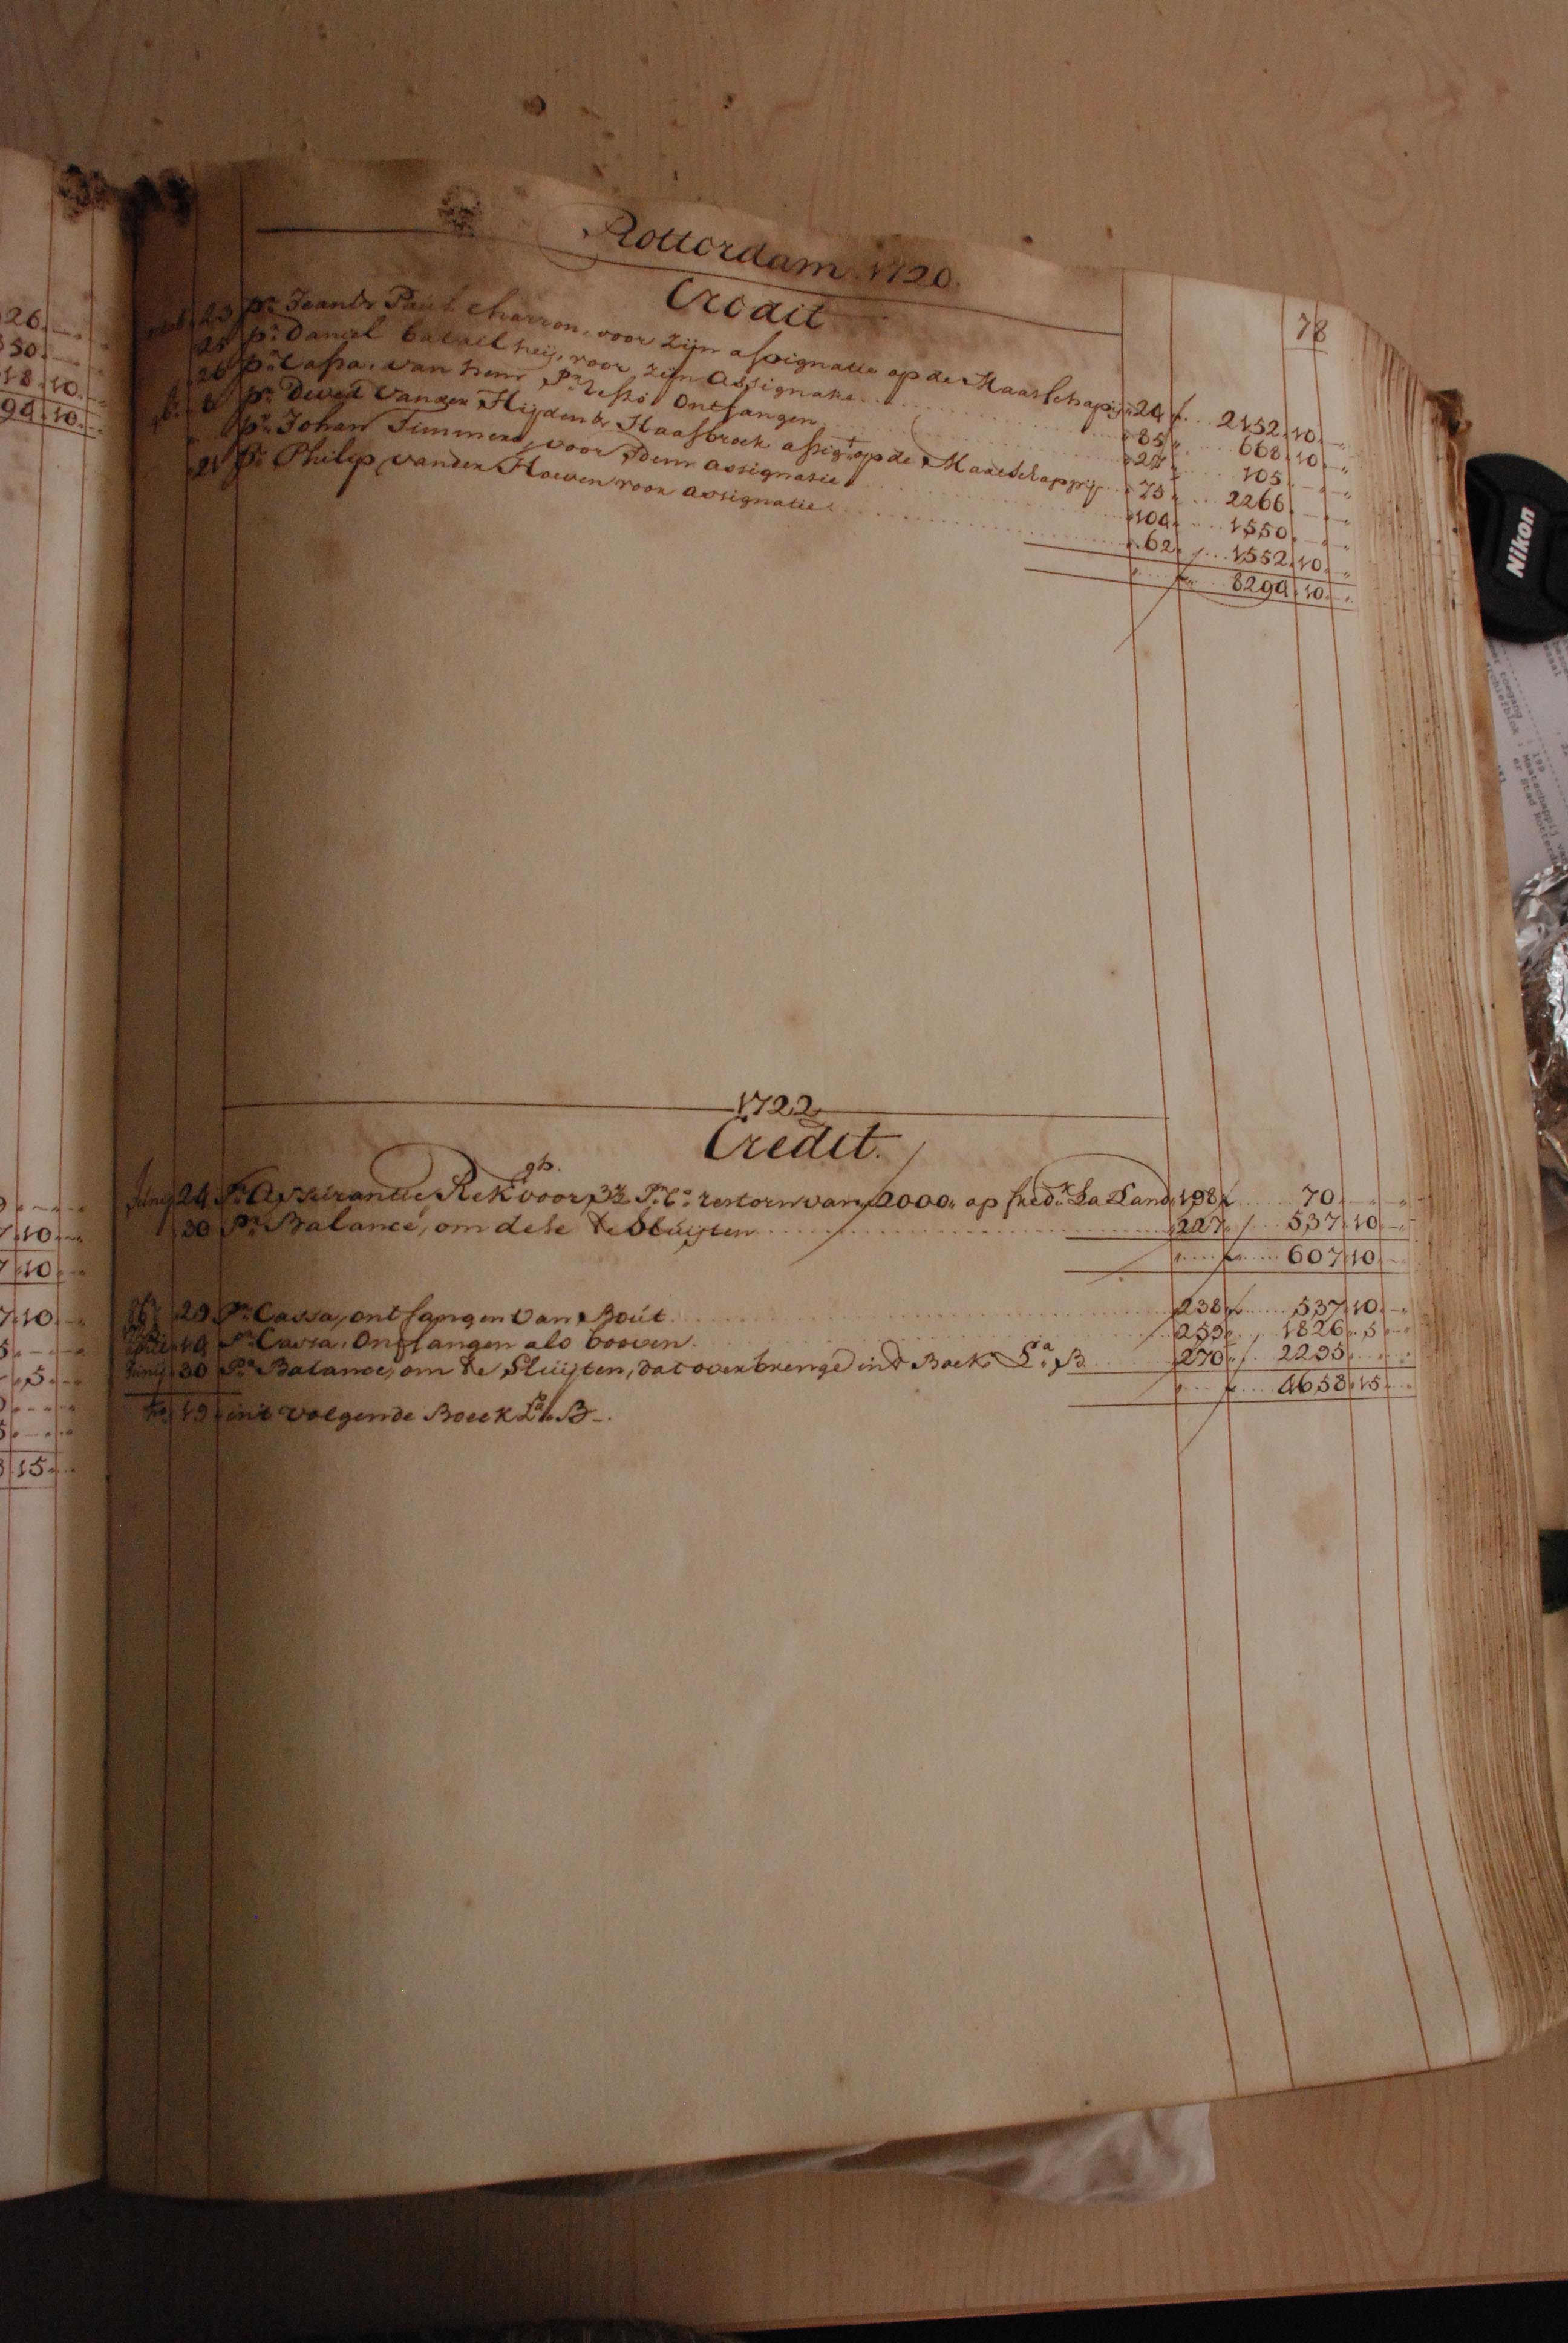 26.
50.
18.10.
94.10.
Rotterdam 1720.
Credit
78
23 pr. Jean & Paul Charron, voor zijn assignatie op de Maatschapij 24 f 2152.10.
25 pr. Daniel Batailheij, voor zijn Assignatie 85 668.10.
26 pr. Cassa. van hem pr. Resto Ontfangen 27 105.
6 pr. David vander Heijden & Haasbroek assigt. op de Maatschappij 73 2266.
pr. Johan Timmers, voor Idem assignatie 104 1550.
21 pr. Philip vander Hoeven voor assignatie 62 1552.10.
8294.10.
1722
Credit.
Junij 24 Pr. Assurantie Rek. gb. voor 3½ Pr. Co. restorn van f 2000 op fredk. La Land 198 f 70
30 Pr. Balance, om dese te Sluijten 227 537.10
607.10
29 Pr. Cassa, ontfangen van Bout 238 f 537.10
April 10 Pr. Cassa. Ontfangen als booven. 259 1826.5
Junij 30 Pr. Balance, om te Sluijten, dat overbrenge in 't Boek La. B 270 2295
4658.15
fo. 19 in 't volgende Boeck La. B.
7.10
7.10
7.10
.5.
15.
Nikon